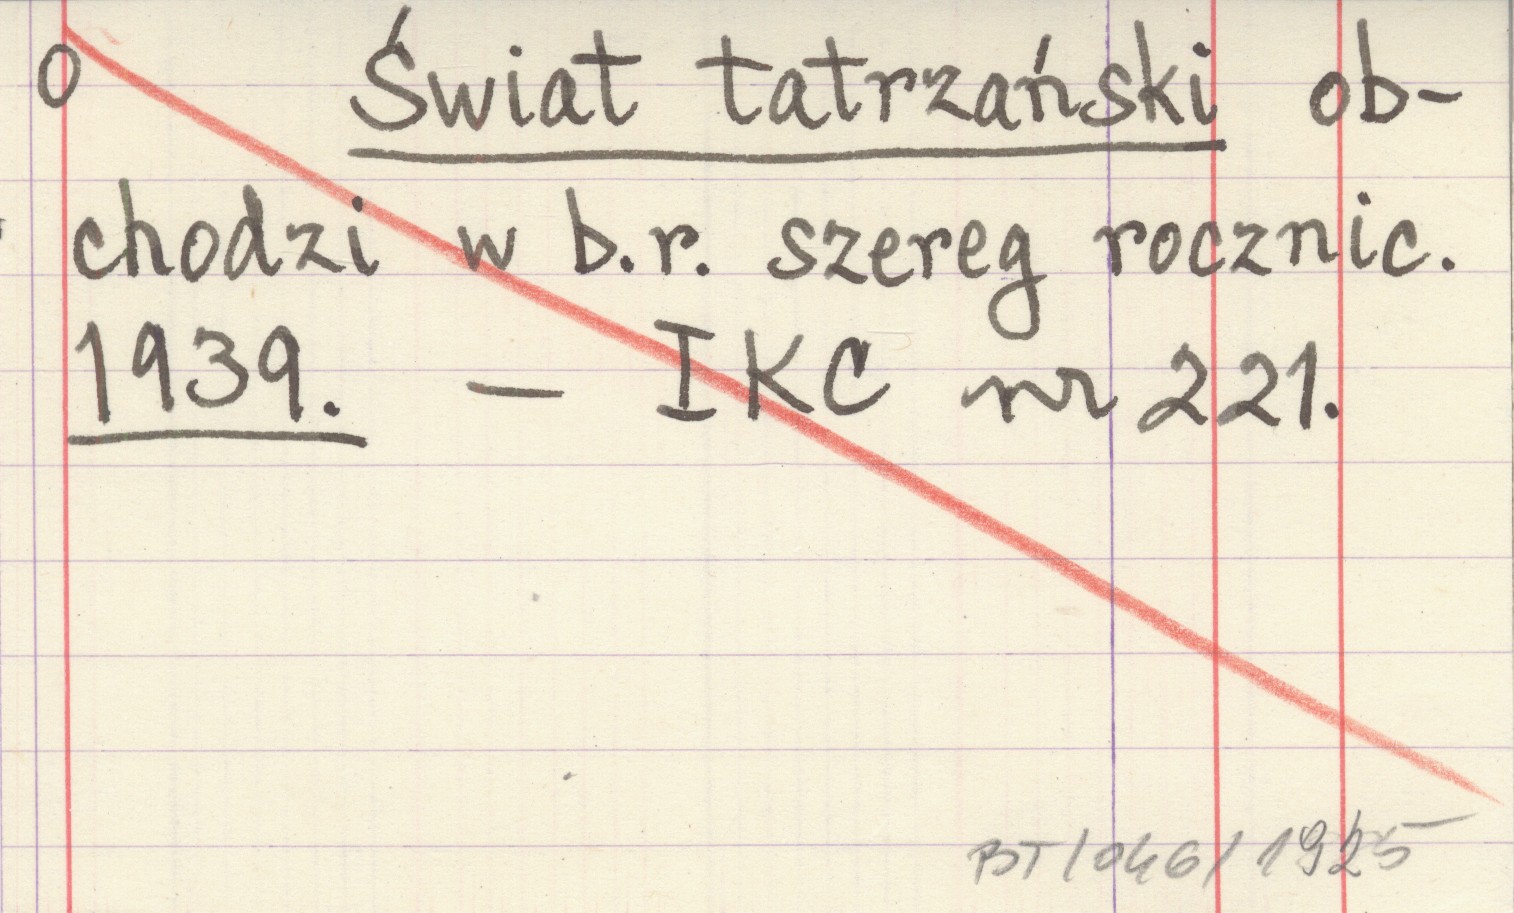 0 Świat tatrzański ob-
chodzi w b.r. szereg rocznic.
1939. — IKC nr 221.
BT/046/1925